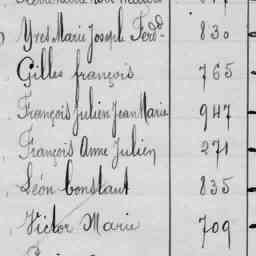 Yves Marie Joseph Ferd^d 830
Gilles françois 765
François Julien Jean Marie 947
François Anne Julien 271
Léon Constant 835
Victor Marie 709